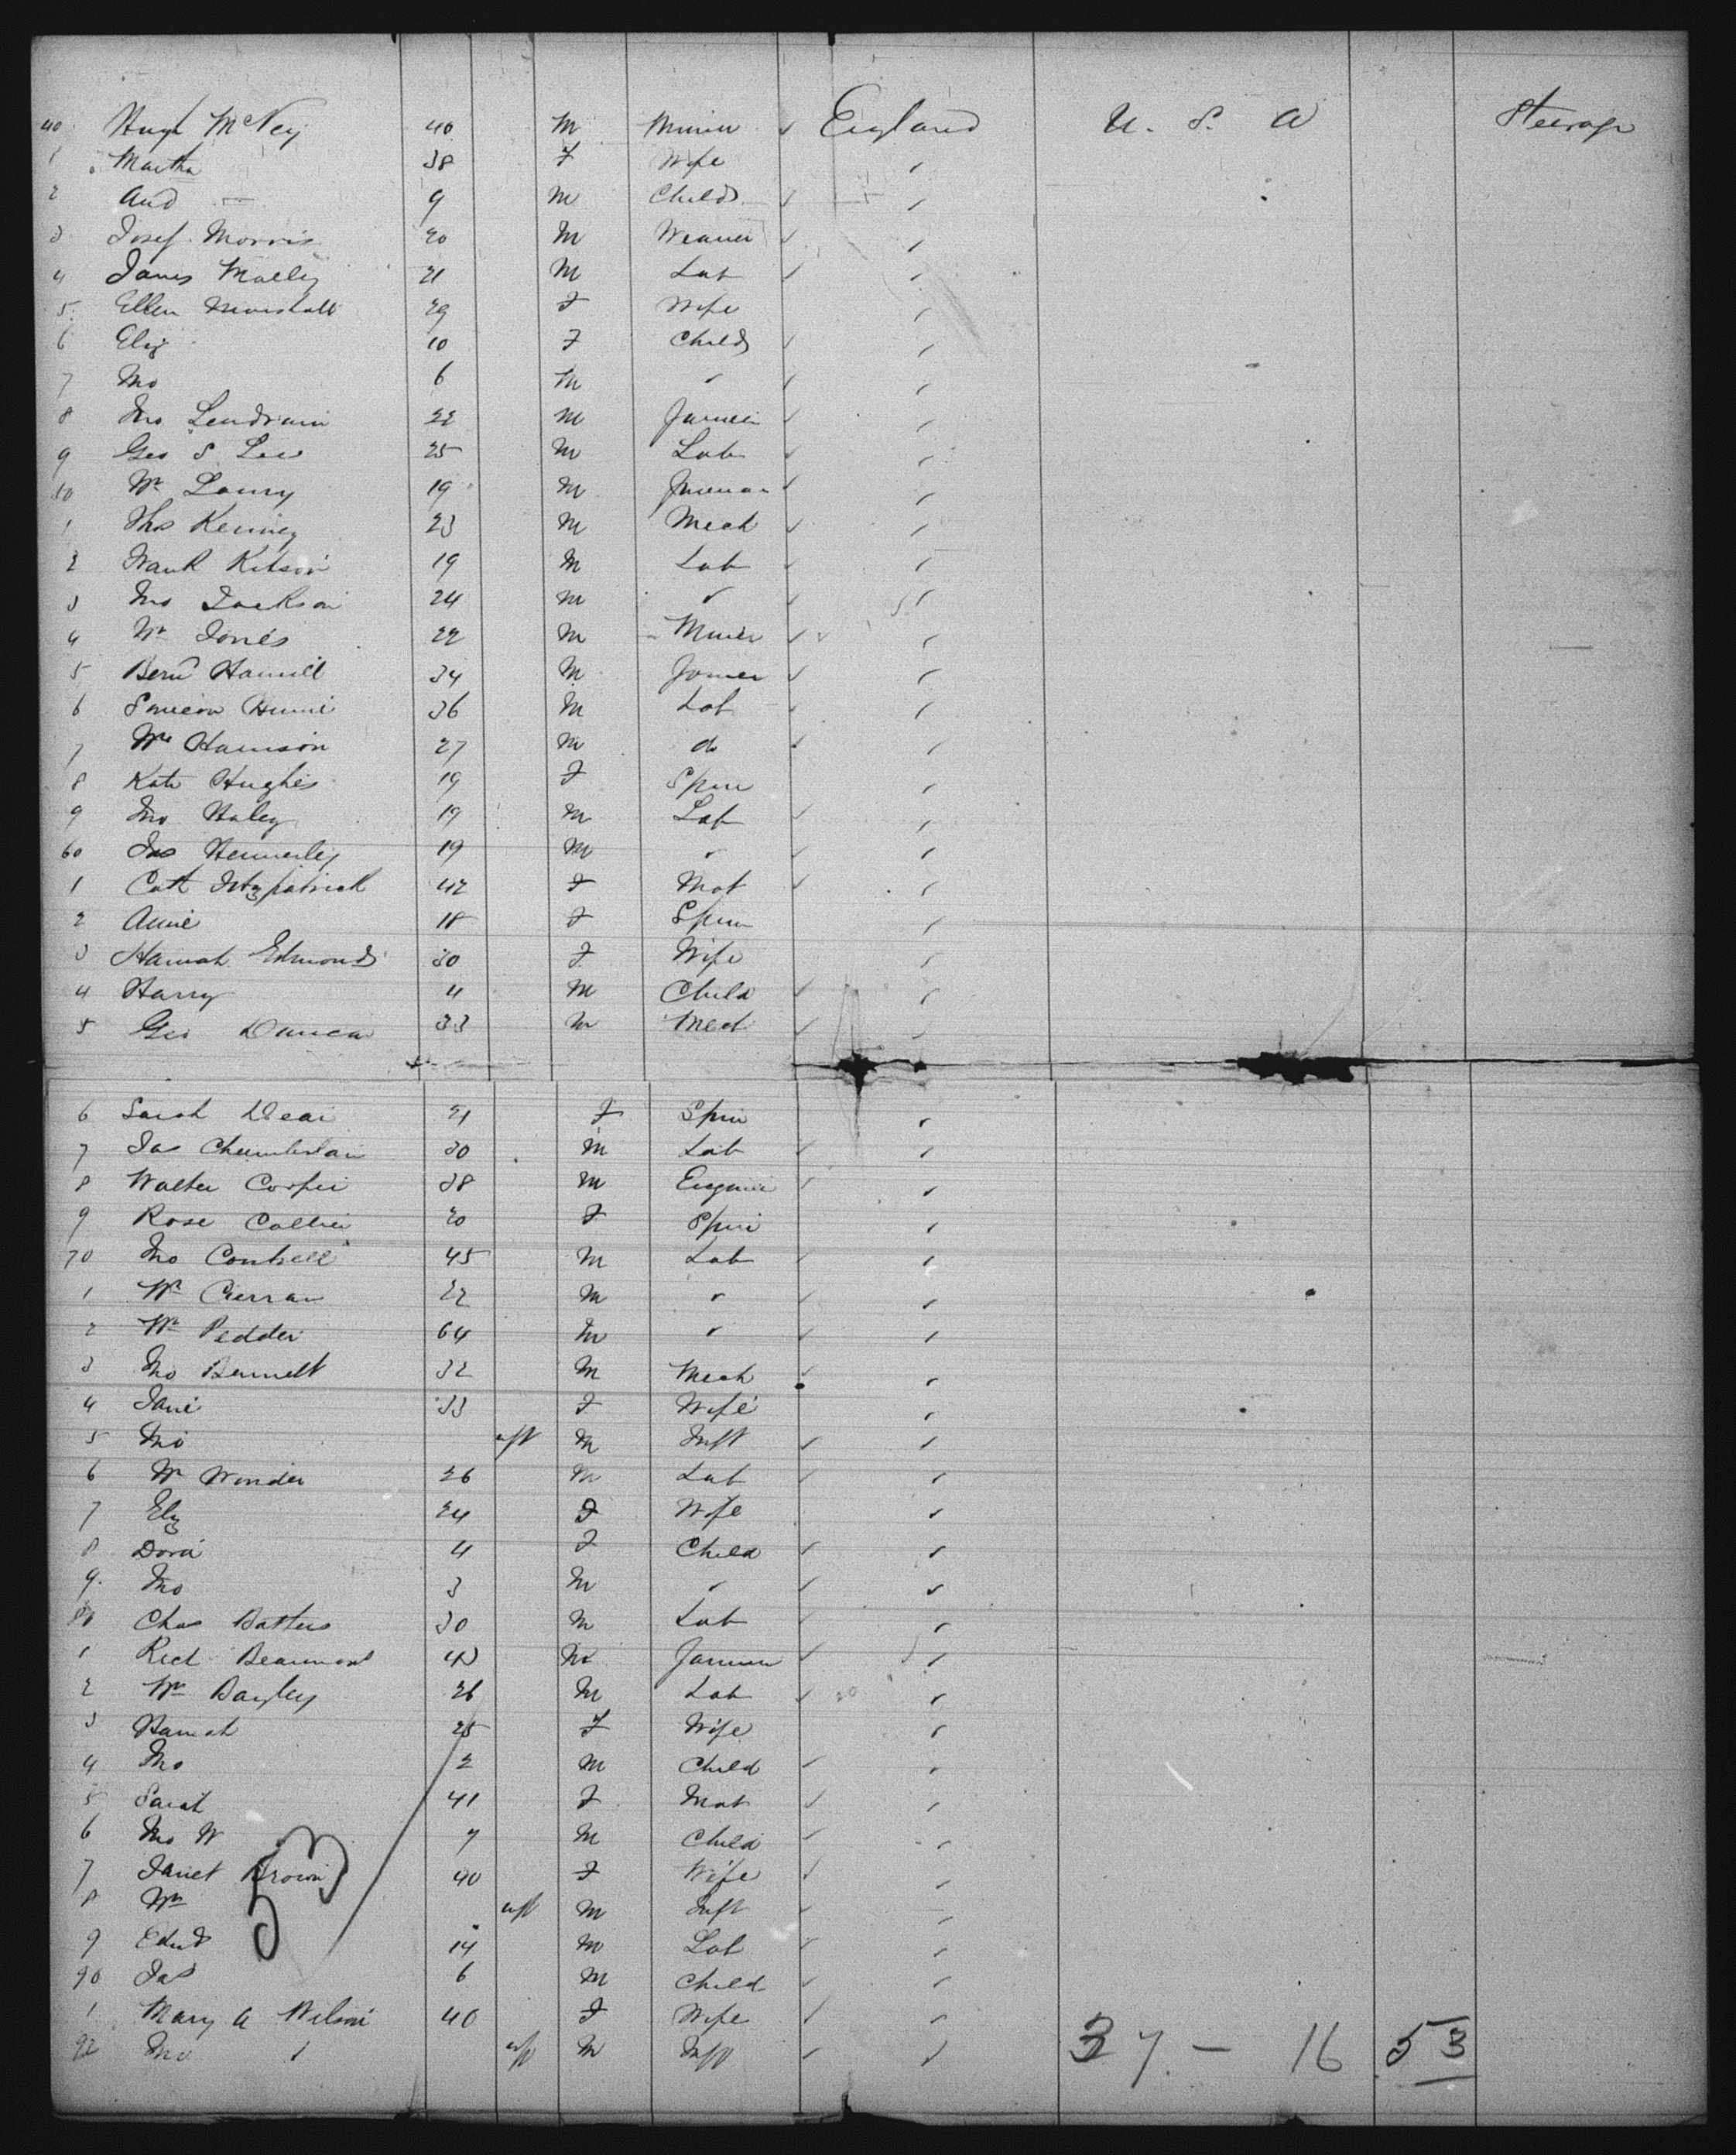 40 Hugh McVey 40 M Miner England U. S. A Steerage
1 Martha 38 F Wife
2 And 9 M Child
3 Josef Morris 20 M Weaver
4 James Malley 21 M Lab
5 Ellen Marshall 29 F Wife
6 Eliz 10 F Child
7 Jno 6 M "
8 Jno Lendrum 22 M Farmer
9 Geo S Lee 25 M Lab
50 Wm Lowry 19 M
1 Thos Kenney 23 M Mech
2 Frank Kitson 19 M Lab
3 Jno Jackson 24 M "
4 Wm Jones 22 M Miner
5 Bernd Hamill 34 M Joiner
6 Simeon 36 M Lab
7 Wm Harrison 27 M do
8 Kate Hughes 19 F Spin
9 Jno Haley 19 M Lab
60 Jas Hennerley 19 M "
1 Cath Fitzpatrick 42 F Mat
2 Annie 18 F Spin
3 Hannah Edmonds 30 F Wife
4 Harry 4 M Child
5 Geo Duncan 33 M Mech
6 Sarah Dear 21 F Spin
7 Jas Chamberlain 30 M Lab
8 Walter Cooper 38 M Engineer
9 Rose Collier 20 F Spin
70 Jno Cantrell 45 M Lab
1 Wm Curran 22 M "
2 Wm Pedder 64 M "
3 Jno Bennett 32 M Mech
4 Jane 33 F Wife
5 Jno inft M Inft
6 Wm Winder 26 M Lab
7 Elz 24 F Wife
8 Dora 4 F Child
9 Jno 3 M "
80 Chas Batters 30 M Lab
1 Richd Beaumont 43 M Farmer
2 Wm Bayley 26 M Lab
3 Hannah 25 F Wife
4 Jno 2 M Child
5 Sarah 41 F Mat
6 Jno W 7 M Child
7 Janet Brown 40 F Wife
8 Wm inft M Inft
9 Edwd 14 M Lab
90 Jas 6 M Child
1 Mary A Wilson 40 F Wife
92 Jno inft M Inft
53
37 - 16 53